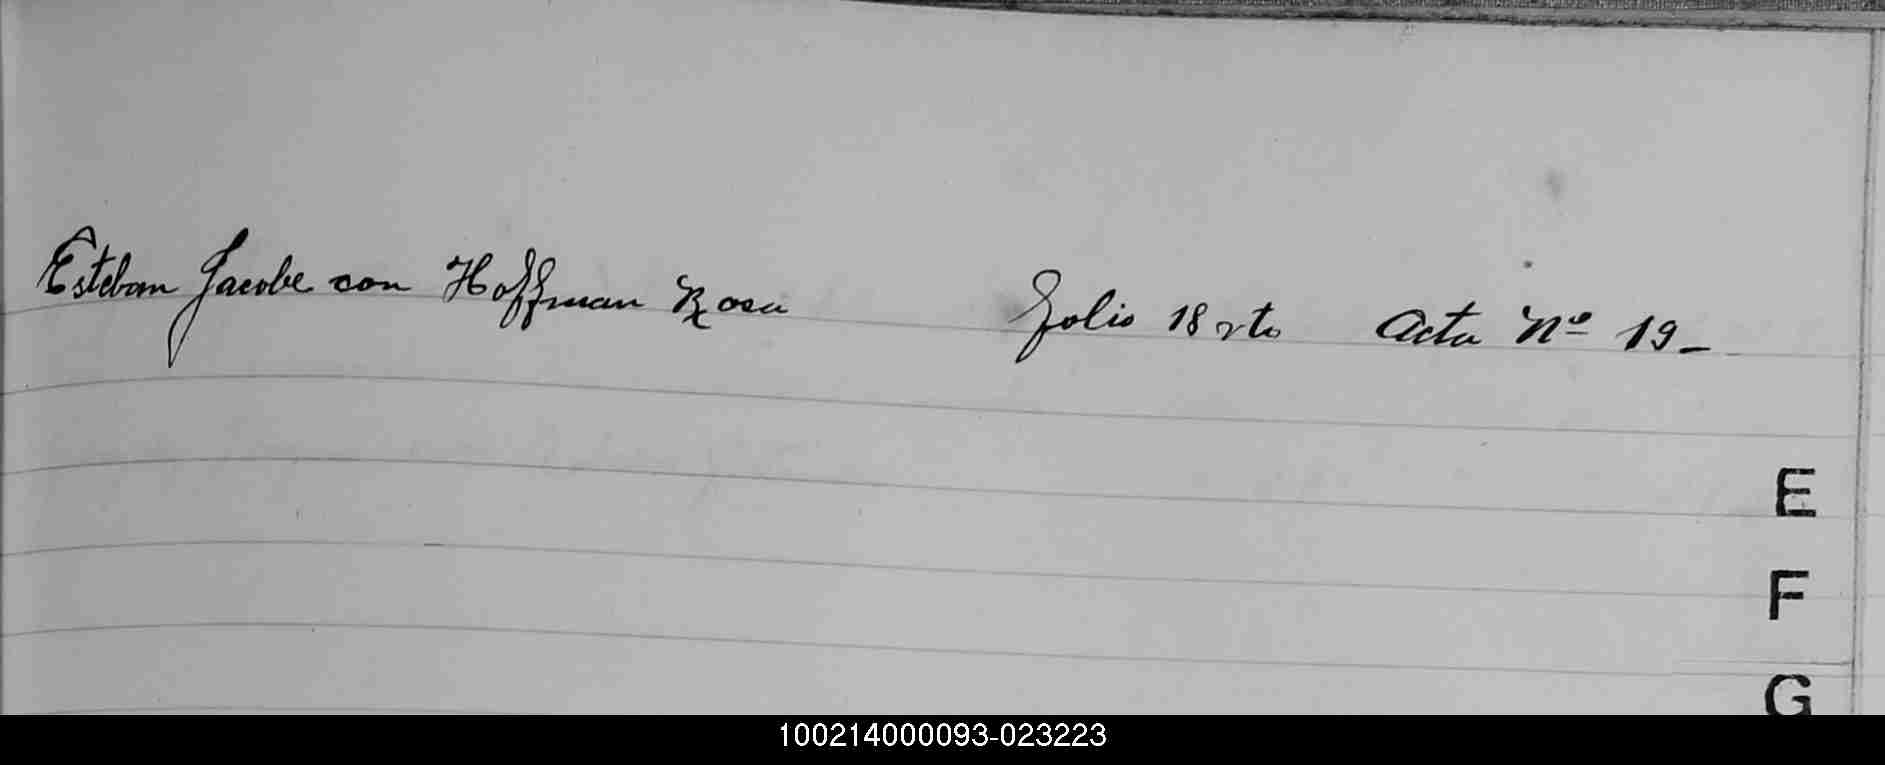 Esteban Jacobe con Hoffman Rosa Folio 18 vto Acta Nº 19-
E
F
G
100214000093-023223